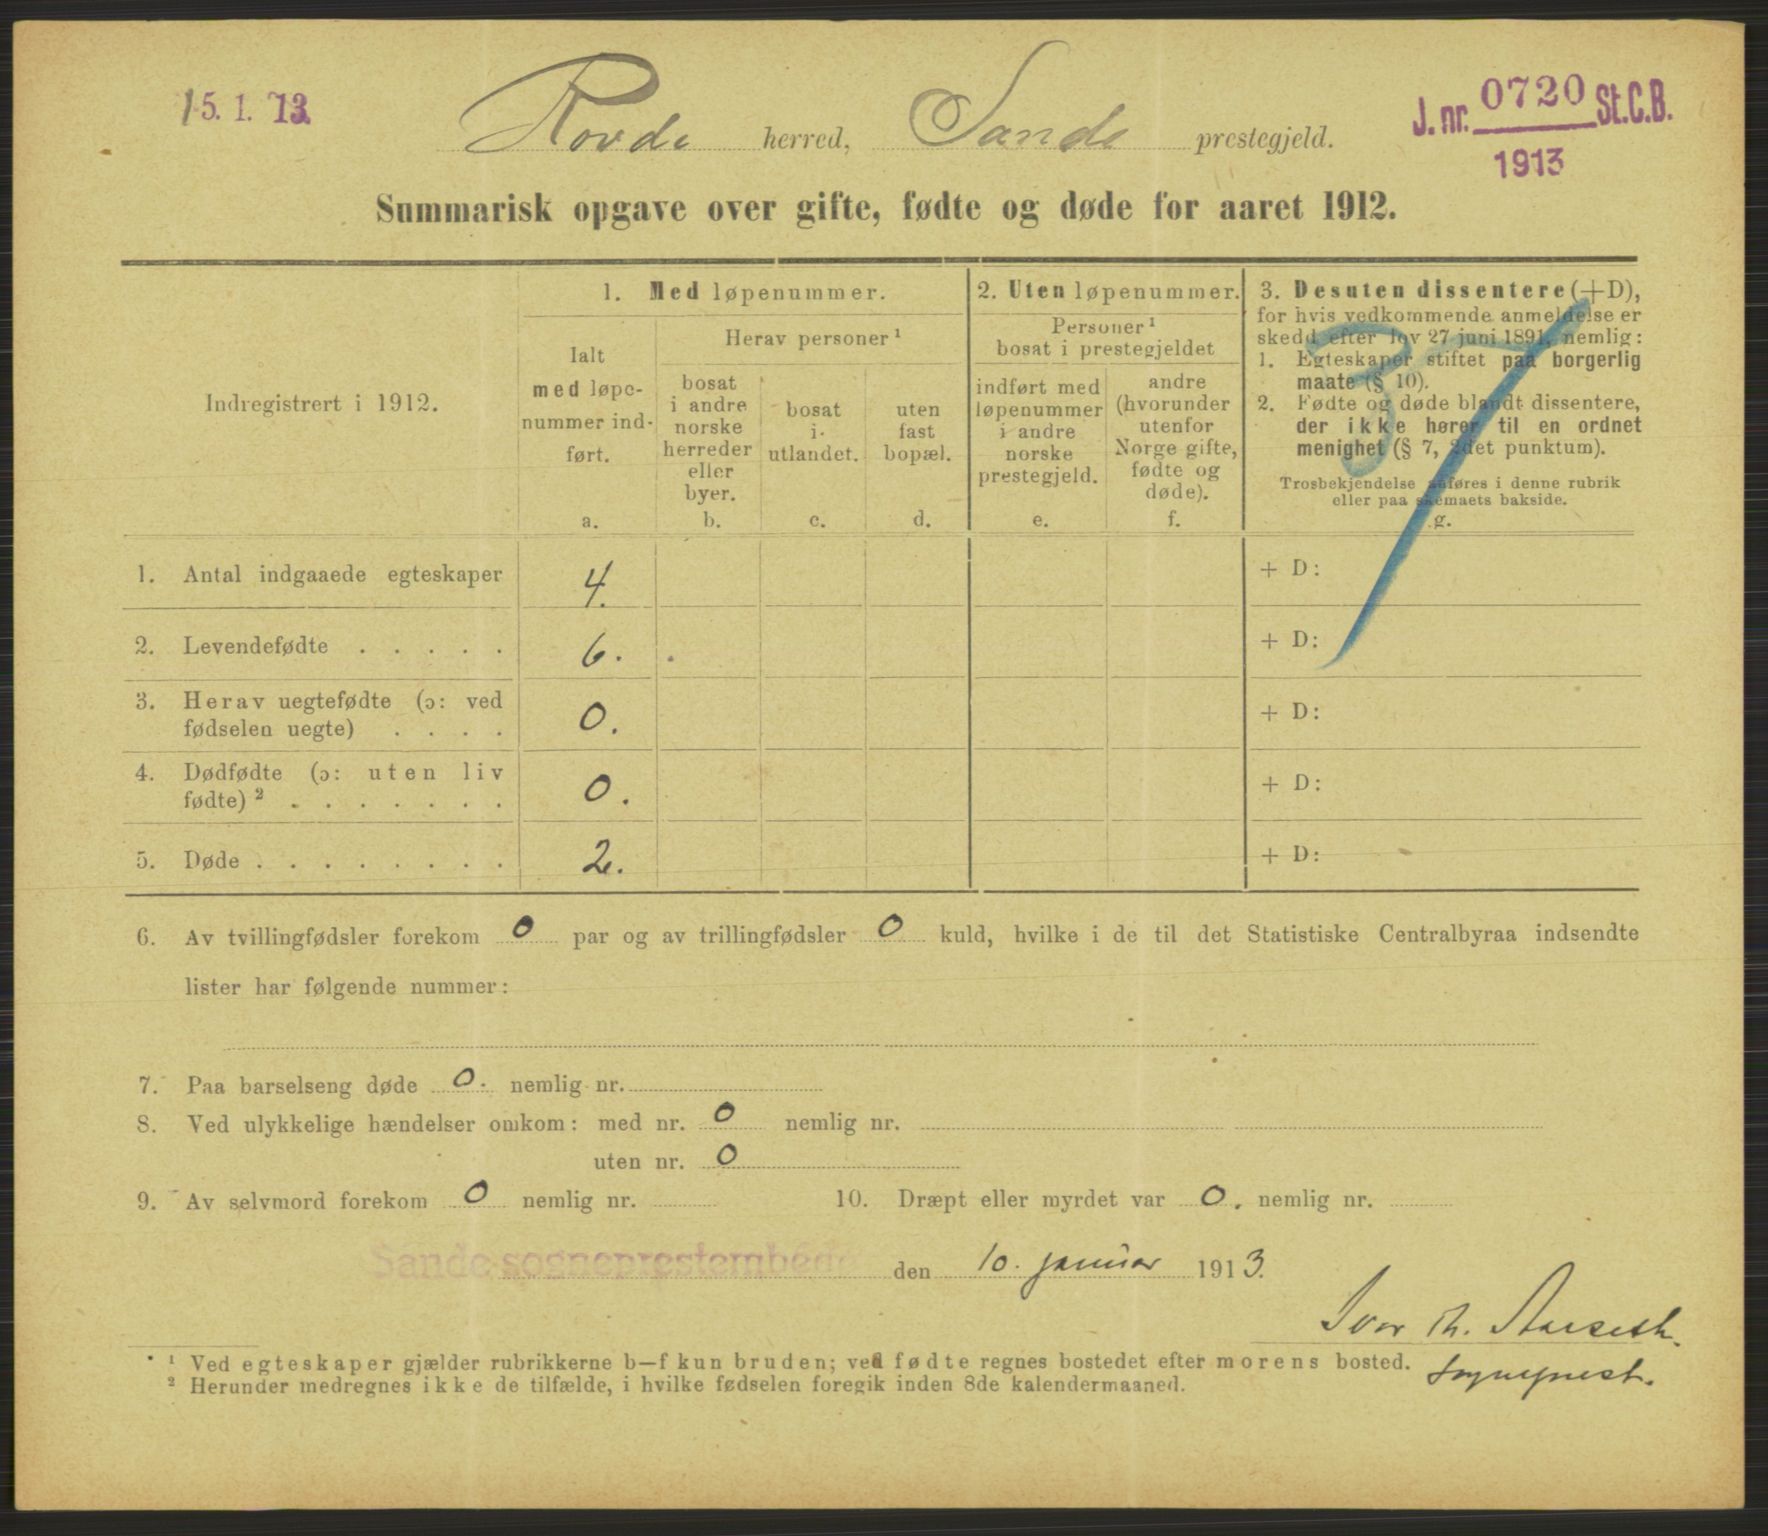 15.1.13.
Rovde herred, Sande prestegjeld.
J. nr. 0720 St.C.B.
1913
Summarisk opgave over gifte, fødte og døde for aaret 1912.
Indregistrert i 1912.
1. Med løpenummer.
Ialt
med løpe-
nummer ind-
ført.
a.
Herav personer ¹
bosat
i andre
norske
herreder
eller
byer.
b.
bosat
i
utlandet.
c.
uten
fast
bopæl.
d.
2. Uten løpenummer.
Personer ¹
bosat i prestegjeldet
indført med
løpenummer
i andre
norske
prestegjeld.
e.
andre
(hvorunder
utenfor
Norge gifte,
fødte og
døde).
f.
3. Desuten dissentere (+D),
for hvis vedkommende anmeldelse er
skedd efter lov 27 juni 1891, nemlig:
1. Egteskaper stiftet paa borgerlig
maate (§ 10).
2. Fødte og døde blandt dissentere,
der ikke hører til en ordnet
menighet (§ 7, 2det punktum).
Trosbekjendelse anføres i denne rubrik
eller paa skemaets bakside.
g.
1. Antal indgaaede egteskaper 4. + D:
2. Levendefødte . . . . . 6. + D:
3. Herav uegtefødte (ɔ: ved
fødselen uegte) . . . . 0. + D:
4. Dødfødte (ɔ: uten liv
fødte) ² . . . . . . . 0. + D:
5. Døde . . . . . . . . 2. + D:
6. Av tvillingfødsler forekom 0 par og av trillingfødsler 0 kuld, hvilke i de til det Statistiske Centralbyraa indsendte
lister har følgende nummer:
7. Paa barselseng døde 0. nemlig nr.
8. Ved ulykkelige hændelser omkom: med nr. 0 nemlig nr.
uten nr. 0
9. Av selvmord forekom 0 nemlig nr. 10. Dræpt eller myrdet var 0. nemlig nr.
Sande sogneprestembede den 10. januar 1913.
Ivar Th. Aarseth.
sogneprest.
¹ Ved egteskaper gjælder rubrikkerne b—f kun bruden; ved fødte regnes bostedet efter morens bosted.
² Herunder medregnes ikke de tilfælde, i hvilke fødselen foregik inden 8de kalendermaaned.